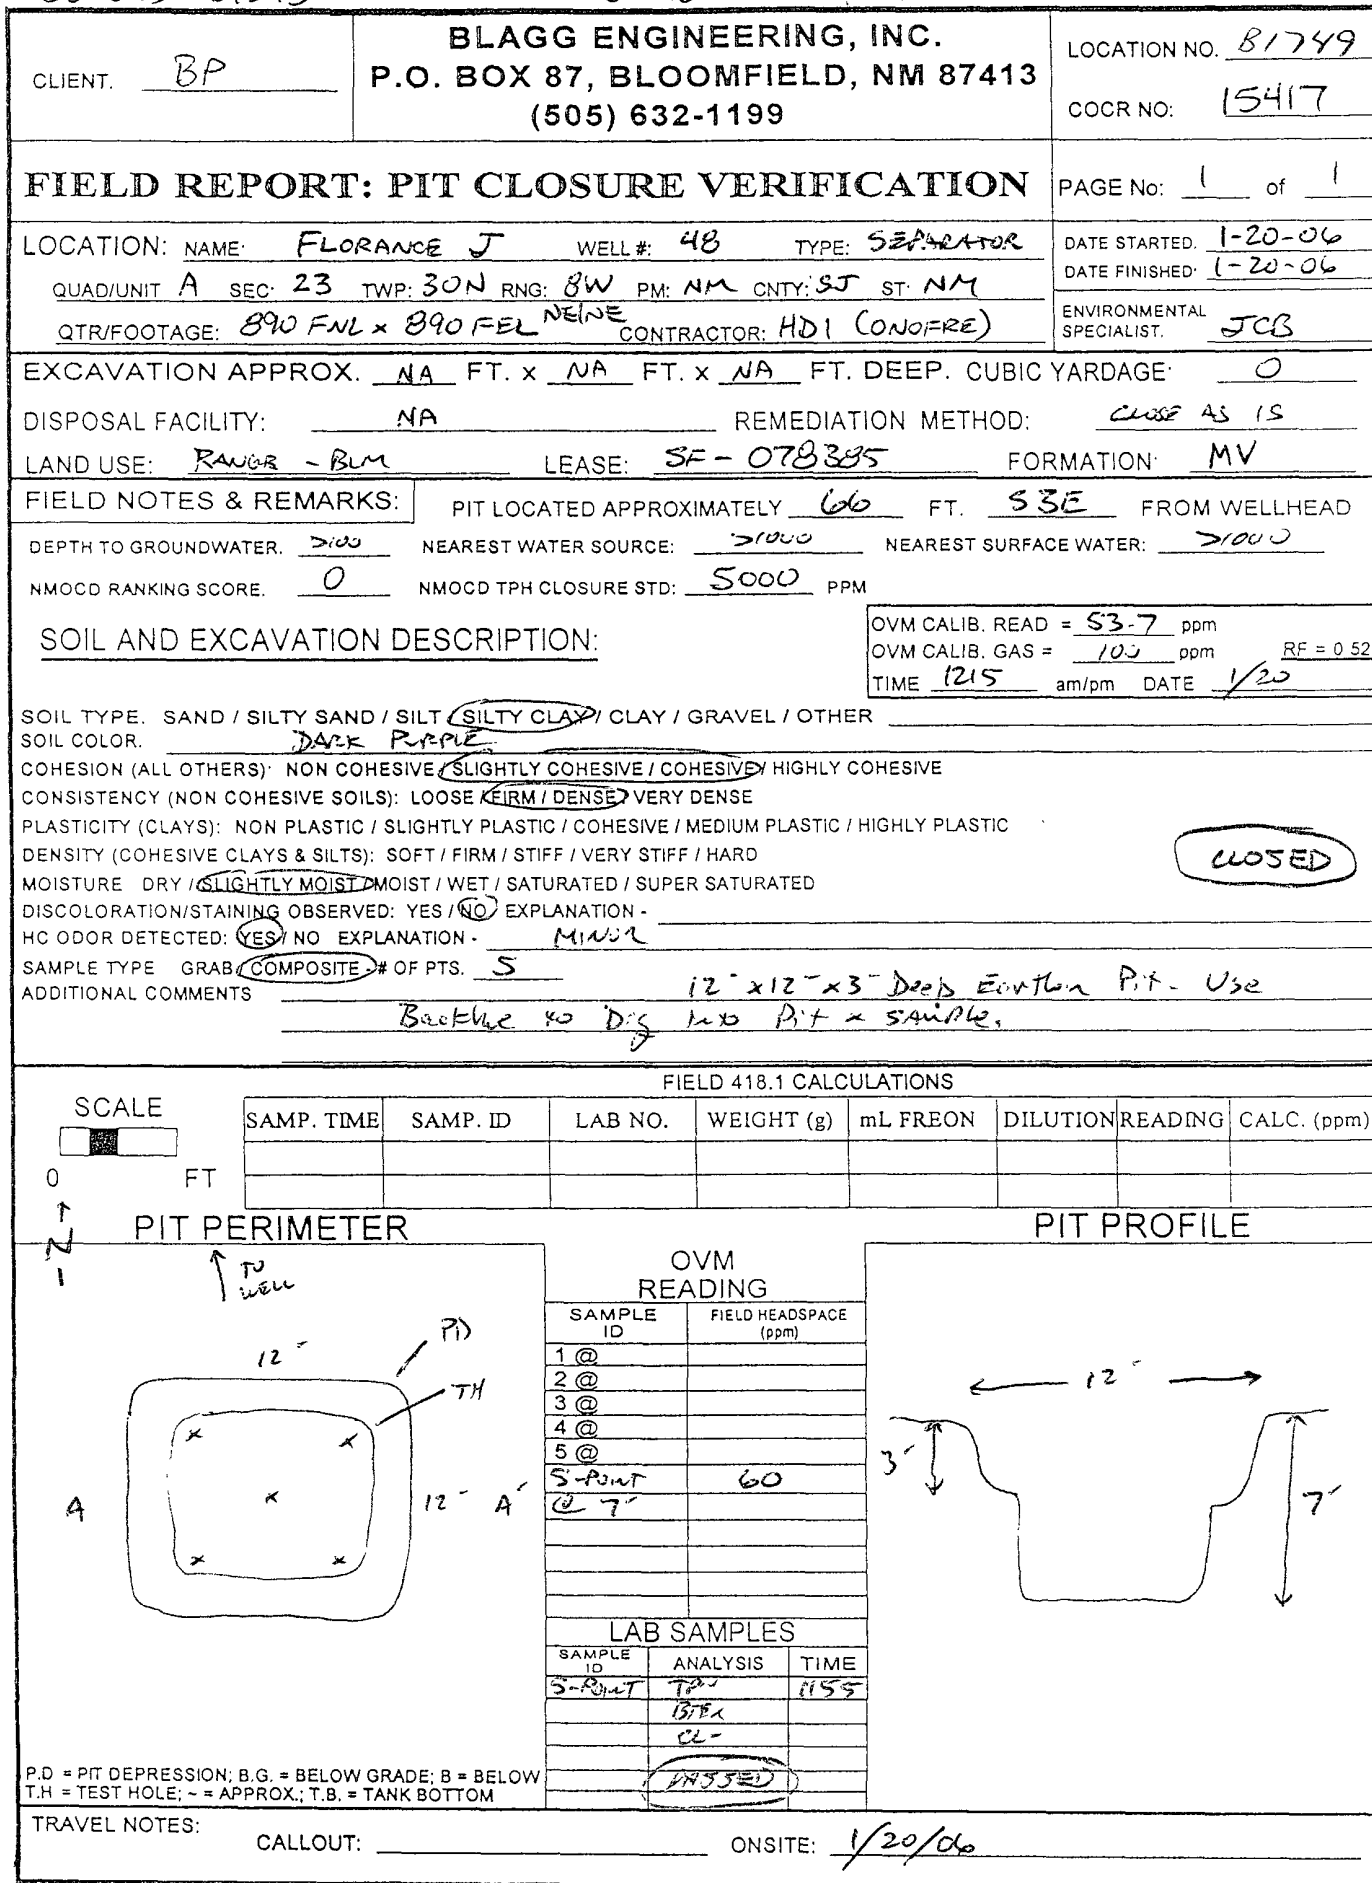 BLAGG ENGINEERING, INC.
P.O. BOX 87, BLOOMFIELD, NM 87413
(505) 632-1199
CLIENT. BP
LOCATION NO. B1749
COCR NO: 15417
FIELD REPORT: PIT CLOSURE VERIFICATION
PAGE No: 1 of 1
LOCATION: NAME: FLORANCE J WELL #: 48 TYPE: SEPARATOR
QUAD/UNIT A SEC: 23 TWP: 30N RNG: 8W PM: NM CNTY: SJ ST: NM
QTR/FOOTAGE: 890 FNL x 890 FEL NE/NE CONTRACTOR: HDI (ONOFRE)
DATE STARTED. 1-20-06
DATE FINISHED. 1-20-06
ENVIRONMENTAL SPECIALIST. JCB
EXCAVATION APPROX. NA FT. x NA FT. x NA FT. DEEP. CUBIC YARDAGE: 0
DISPOSAL FACILITY: NA REMEDIATION METHOD: CLOSE AS IS
LAND USE: RANGE - BLM LEASE: SF - 078385 FORMATION: MV
FIELD NOTES & REMARKS: PIT LOCATED APPROXIMATELY 66 FT. S3E FROM WELLHEAD
DEPTH TO GROUNDWATER. >100 NEAREST WATER SOURCE: >1000 NEAREST SURFACE WATER: >1000
NMOCD RANKING SCORE. 0 NMOCD TPH CLOSURE STD: 5000 PPM
SOIL AND EXCAVATION DESCRIPTION:
OVM CALIB. READ = 53.7 ppm
OVM CALIB. GAS = 100 ppm RF = 0 52
TIME 1215 am/pm DATE 1/20
SOIL TYPE. SAND / SILTY SAND / SILT / SILTY CLAY / CLAY / GRAVEL / OTHER
SOIL COLOR. DARK PURPLE
COHESION (ALL OTHERS): NON COHESIVE / SLIGHTLY COHESIVE / COHESIVE / HIGHLY COHESIVE
CONSISTENCY (NON COHESIVE SOILS): LOOSE / FIRM / DENSE / VERY DENSE
PLASTICITY (CLAYS): NON PLASTIC / SLIGHTLY PLASTIC / COHESIVE / MEDIUM PLASTIC / HIGHLY PLASTIC
DENSITY (COHESIVE CLAYS & SILTS): SOFT / FIRM / STIFF / VERY STIFF / HARD
MOISTURE DRY / SLIGHTLY MOIST / MOIST / WET / SATURATED / SUPER SATURATED
DISCOLORATION/STAINING OBSERVED: YES / NO EXPLANATION -
HC ODOR DETECTED: YES / NO EXPLANATION - MINOR
SAMPLE TYPE GRAB / COMPOSITE - # OF PTS. 5
CLOSED
ADDITIONAL COMMENTS 12' x 12' x 3' Deep Earthen Pit. Use
Backhoe to Dig into Pit & SAMPLE.
FIELD 418.1 CALCULATIONS
SCALE
0 FT
SAMP. TIME SAMP. ID LAB NO. WEIGHT (g) mL FREON DILUTION READING CALC. (ppm)
N
PIT PERIMETER
TO WELL
PD
12'
TH
A 12' A'
OVM READING
SAMPLE ID FIELD HEADSPACE (ppm)
1 @
2 @
3 @
4 @
5 @
5-POINT 60
@ 7'
LAB SAMPLES
SAMPLE ID ANALYSIS TIME
5-POINT TPH 1155
BTEX
CL-
PASSED
PIT PROFILE
12'
3'
7'
P.D = PIT DEPRESSION; B.G. = BELOW GRADE; B = BELOW
T.H = TEST HOLE; ~ = APPROX.; T.B. = TANK BOTTOM
TRAVEL NOTES: CALLOUT: ONSITE: 1/20/06